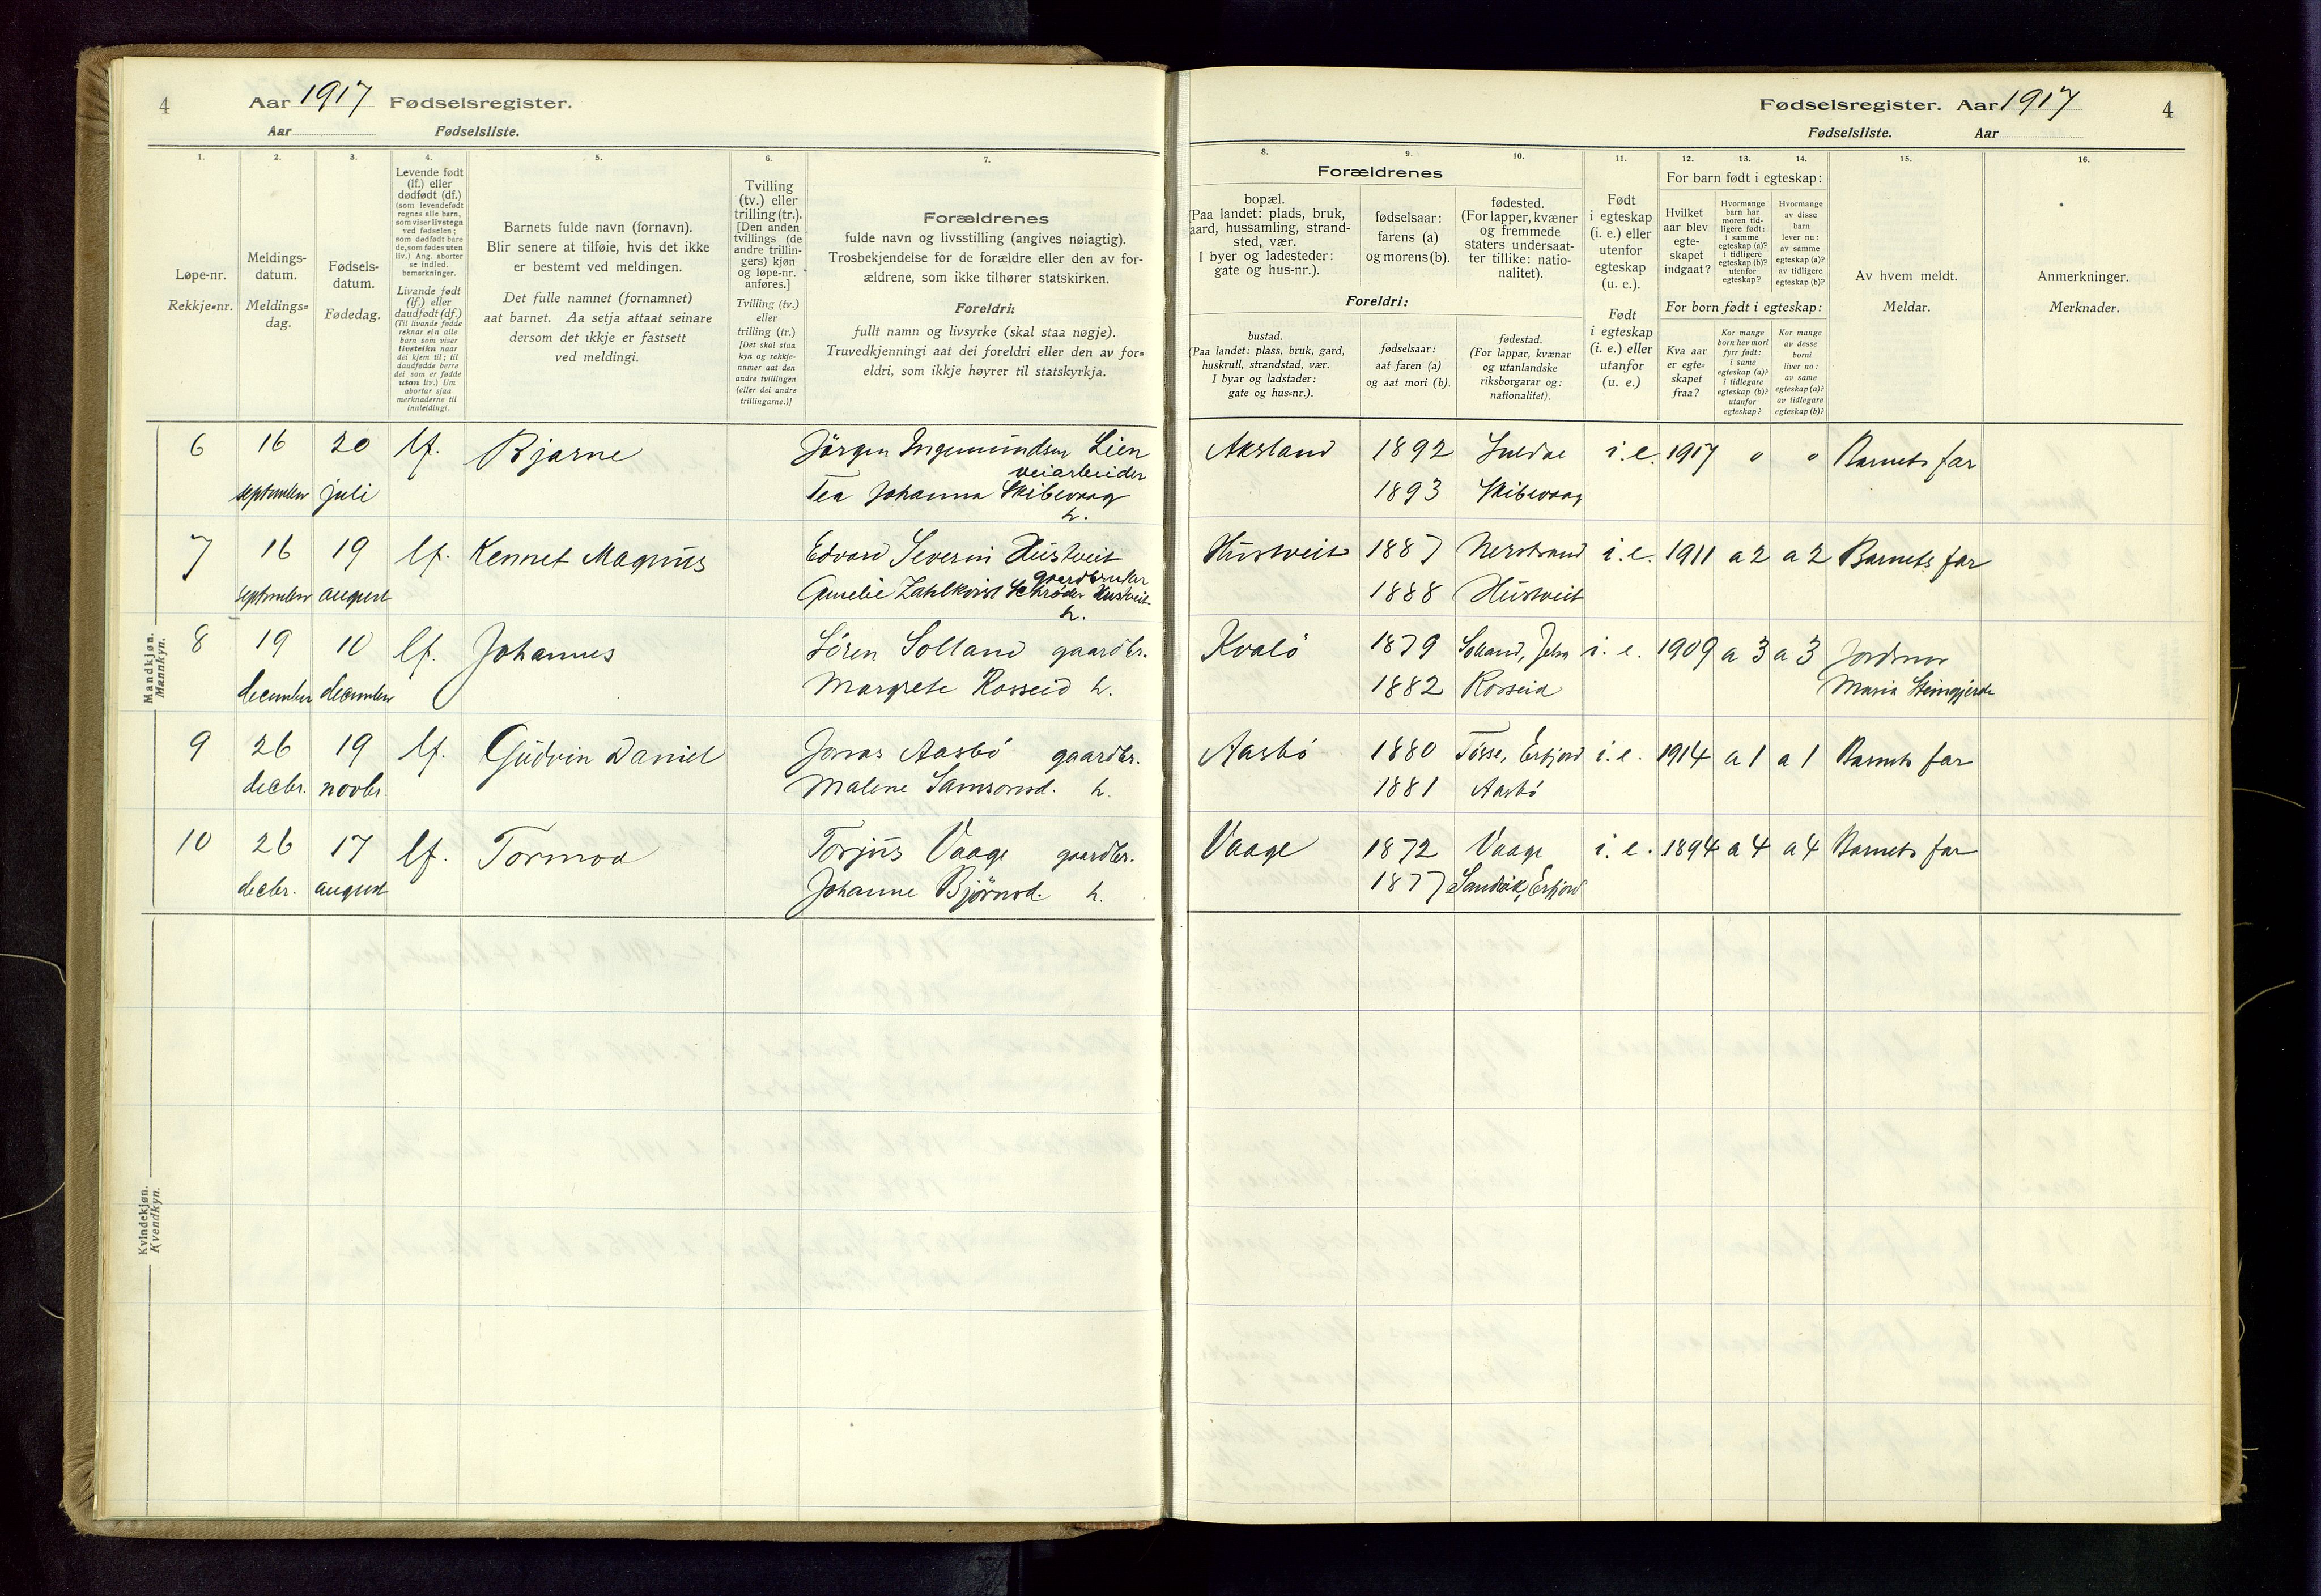 4
Aar 1917 Fødselsregister.
Aar Fødselsliste.
1. 2. 3. 4. 5. 6. 7.
Løpe-nr.
Rekkje-nr.
Meldings-
datum.
Meldings-
dag.
Fødsels-
datum.
Fødedag.
Levende født
(lf.) eller
dødfødt (df.)
(som levendefødt
regnes alle barn,
som viser livstegn
ved fødselen;
som dødfødt bare
de, som fødes uten
liv.) Ang. aborter
se indled.
bemerkninger.
Livande født
(lf.) eller
daudfødt (df.)
(Til livande fødde
reknar ein alle
born som viser
livsteikn naar
dei kjem til; til
daudfødde berre
dei som er fødde
utan liv.) Um
abortar sjaa
merknaderne til
innleidingi.
Barnets fulde navn (fornavn).
Blir senere at tilføie, hvis det ikke
er bestemt ved meldingen.
Det fulle namnet (fornamnet)
aat barnet. Aa setja attaat seinare
dersom det ikkje er fastsett
ved meldingi.
Tvilling
(tv.) eller
trilling (tr.).
[Den anden
tvillings (de
andre trillin-
gers) kjøn
og løpe-nr.
anføres.]
Tvilling (tv.)
eller
trilling (tr.)
[Det skal staa
kyn og rekkje-
numer aat den
andre tvillingen
(eller dei andre
trillingarne.)]
Forældrenes
fulde navn og livsstilling (angives nøiagtig).
Trosbekjendelse for de forældre eller den av for-
ældrene, som ikke tilhører statskirken.
Foreldri:
fullt namn og livsyrke (skal staa nøgje).
Truvedkjenningi aat dei foreldri eller den av for-
eldri, som ikkje høyrer til statskyrkja.
Mandkjøn.
Mannkyn.
6 16 20 lf. Bjarne Jörgen Ingemundsen Lien
veiarbeider
september juli Tea Johanna Skibevaag
h.
7 16 19 lf. Kennet Magnus Edvard Severin Hustveit
gaardbruker
september august Amelie Zahlkvist Schrøder Hustveit
h.
8 19 10 lf. Johannes Sören Solland gaardbr.
december december Margrete Rosseid h.
9 26 19 lf. Gudvin Daniel Jonas Aasbö gaardbr.
decbr. novbr. Malene Samsonsd. h.
10 26 17 lf. Tormod Torjus Vaage gaardbr.
decbr. august Johanne Björnsd. h.
Kvindekjøn.
Kvendkyn.
Fødselsregister. Aar 1917 4
Fødselsliste. Aar
8. 9. 10. 11. 12. 13. 14. 15. 16.
Forældrenes
bopæl.
(Paa landet: plads, bruk,
aard, hussamling, strand-
sted, vær.
I byer og ladesteder:
gate og hus-nr.).
fødselsaar:
farens (a)
og morens (b).
fødested.
(For lapper, kvæner
og fremmede
staters undersaat-
ter tillike: natio-
nalitet).
Foreldri:
bustad.
(Paa landet: plass, bruk, gard,
huskrull, strandstad, vær.
I byar og ladstader:
gate og hus-nr.).
fødselsaar:
aat faren (a)
og aat mori (b).
fødestad.
(For lappar, kvænar
og utanlandske
riksborgarar og:
nationalitet).
Født
i egteskap
(i. e.) eller
utenfor
egteskap
(u. e.).
Født
i egteskap
(i. e.) eller
utanfor
(u. e.)
For barn født i egteskap:
Hvilket
aar blev
egte-
skapet
indgaat?
Hvormange
barn har
moren tid-
ligere født:
i samme
egteskap (a)?
i tidligere
egteskap (b)?
utenfor
egteskap?
Hvormange
av disse
barn
lever nu:
av samme
egteskap (a)?
av tidligere
egteskap (b)?
For born født i egteskap:
Kva aar
er egte-
skapet
fraa?
Kor mange
born hev mori
fyrr født:
i same
egteskap (a)?
i tidlegare
egteskap (b)?
utanfor
egteskap?
Kor mange
av desse
borni
liver no:
av same
egteskap (a)?
av tidlegare
egteskap (b)?
Av hvem meldt.
Meldar.
Anmerkninger.
Merknader.
Aksland 1892 Suldal i. e. 1917 " " Barnets far
1893 Skibevaag
Hustveit 1887 Nerstrand i. e. 1911 a 2 a 2 Barnets far
1888 Hustveit
Kvalö 1879 Solland, Jelsa i. e. 1909 a 3 a 3 Jordmor
1882 Rosseid Maria Steingjerde
Aasbö 1880 Tösse, Erfjord i. e. 1914 a 1 a 1 Barnets far
1881 Aasbö
Vaage 1872 Vaage i. e. 1894 a 4 a 4 Barnets far
1877 Sandvik, Erfjord